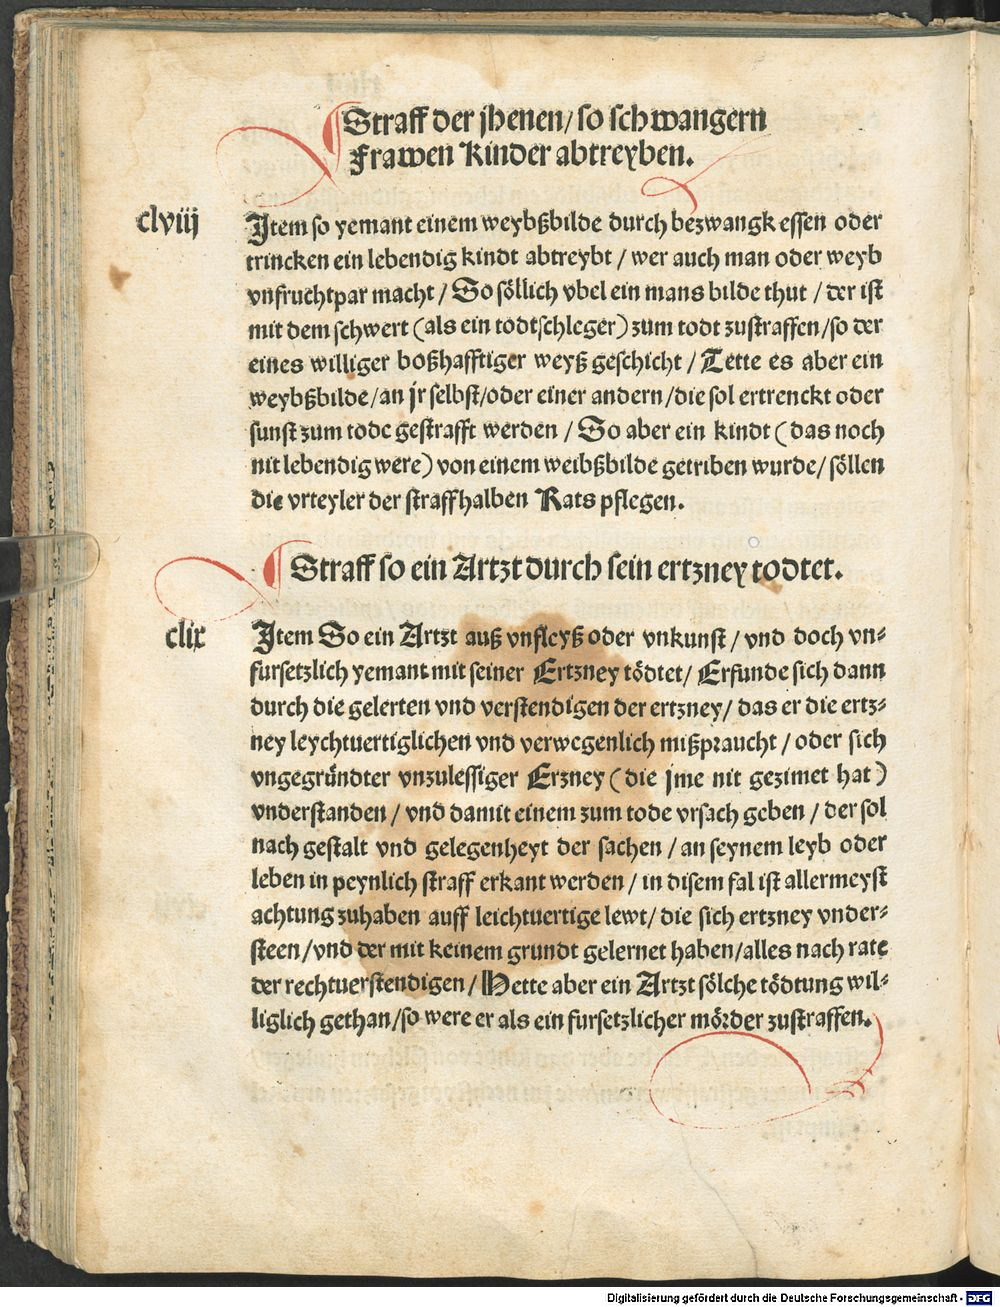 Straff der jhenen/ so schwangern
Frawen Kinder abtreyben.
clviij
Item so yemant einem weybßbilde durch bezwangk essen oder
trincken ein lebendig kindt abtreybt / wer auch man oder weyb
vnfruchtpar macht / So söllich vbel ein mans bilde thut / der ist
mit dem schwert (als ein todtschleger) zum todt zustraffen/so der
eines williger boßhafftiger weyß geschicht / Tette es aber ein
weybßbilde/an jr selbst/oder einer andern/die sol ertrenckt oder
sunst zum tode gestrafft werden / So aber ein kindt (das noch
nit lebendig were) von einem weibßbilde getriben wurde/ söllen
die vrteyler der straffhalben Rats pflegen.
Straff so ein Artzt durch sein ertzney todtet.
clix
Item So ein Artzt auß vnfleyß oder vnkunst / vnd doch vn-
fursetzlich yemant mit seiner Ertzney tödtet/ Erfunde sich dann
durch die gelerten vnd verstendigen der ertzney/ das er die ertz-
ney leychtuertiglichen vnd verwegenlich mißpraucht / oder sich
vngegründter vnzulessiger Erzney (die jme nit gezimet hat)
vnderstanden / vnd damit einem zum tode vrsach geben / der sol
nach gestalt vnd gelegenheyt der sachen / an seynem leyb oder
leben in peynlich straff erkant werden / in disem fal ist allermeyst
achtung zuhaben auff leichtuertige lewt/ die sich ertzney vnder-
steen/vnd der mit keinem grundt gelernet haben/alles nach rate
der rechtuerstendigen / Hette aber ein Artzt sölche tödtung wil-
liglich gethan/so were er als ein fursetzlicher mörder zustraffen.
Digitalisierung gefördert durch die Deutsche Forschungsgemeinschaft - DFG